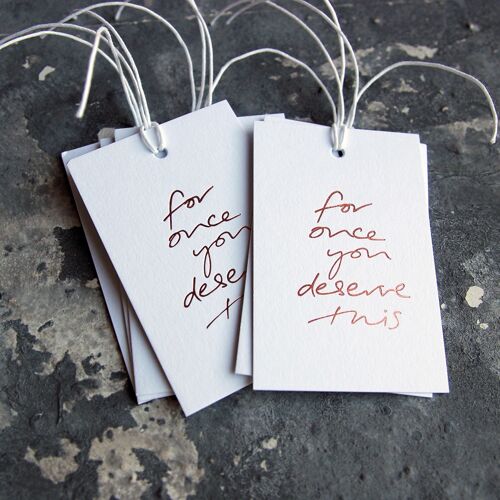 for
once
you
deserve
this
for
once
you
deserve
this